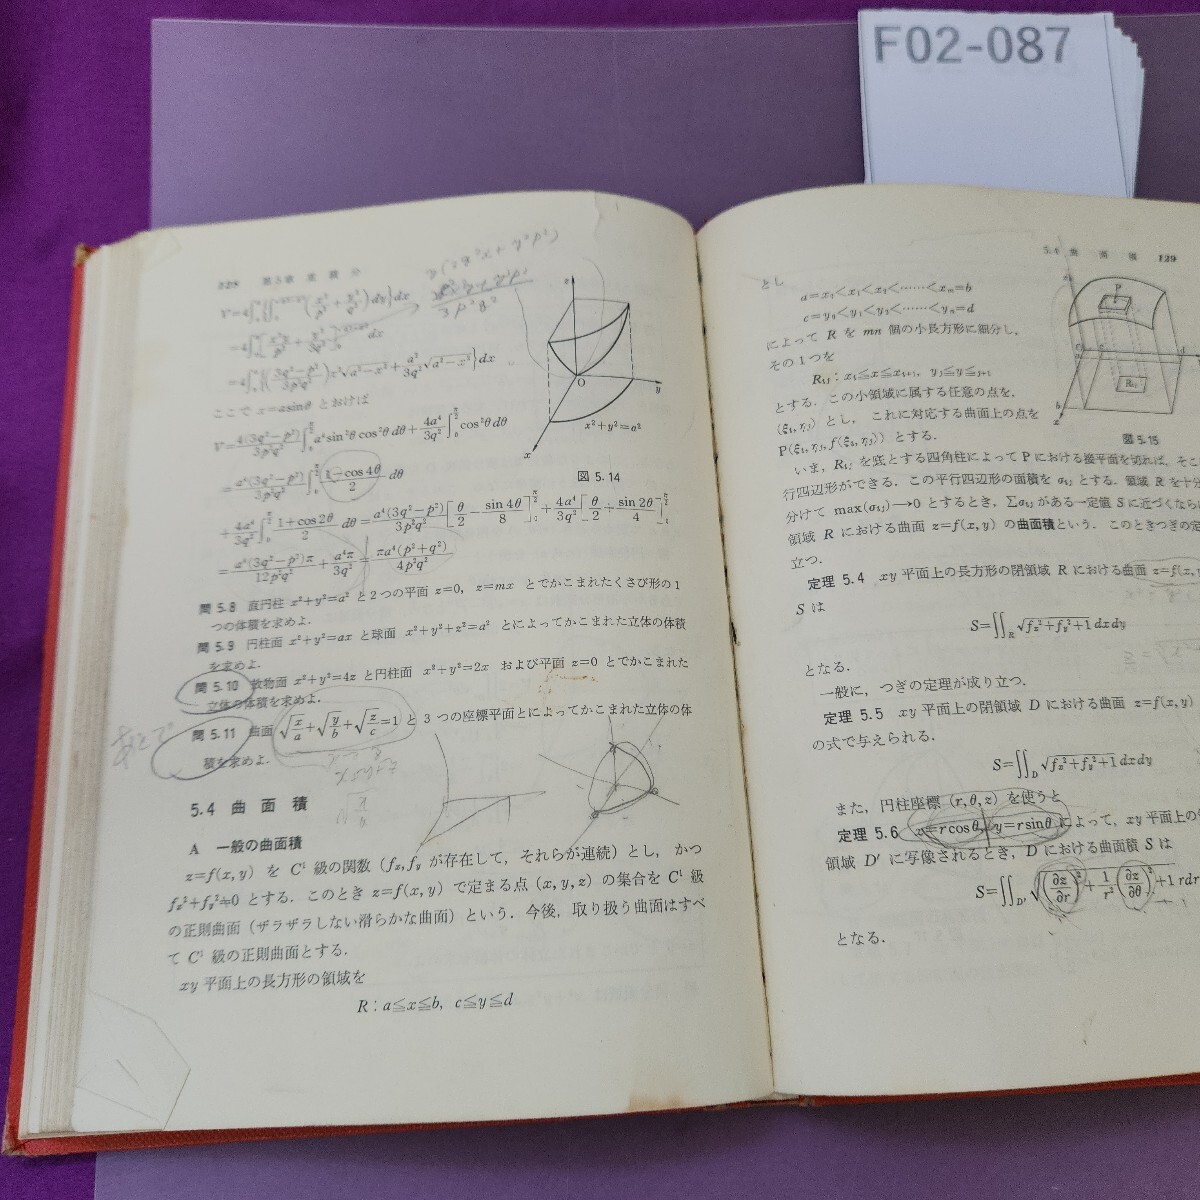 F02-087
第5章 重積分
ここで x=asinθ とおけば
V=4(3q²−p²)/3p²q² ∫₀^{π/2} a⁴sin²θcos²θdθ+4a⁴/3q² ∫₀^{π/2} cos²θdθ
=a⁴(3q²−p²)/3p²q² ∫₀^{π/2} (1−cos4θ)/2 dθ
+4a⁴/3q² ∫₀^{π/2} (1+cos2θ)/2 dθ=a⁴(3q²−p²)/3p²q² [θ/2−sin4θ/8]₀^{π/2}+4a⁴/3q² [θ/2+sin2θ/4]₀^{π/2}
=a⁴(3q²−p²)π/12p²q²+a⁴π/3q²=πa⁴(p²+q²)/4p²q²
z
O
y
x
x²+y²=a²
図 5.14
問 5.8 直円柱 x²+y²=a² と2つの平面 z=0, z=mx とでかこまれたくさび形の1
つの体積を求めよ.
問 5.9 円柱面 x²+y²=ax と球面 x²+y²+z²=a² とによってかこまれた立体の体積
を求めよ.
問 5.10 放物面 x²+y²=4z と円柱面 x²+y²=2x および平面 z=0 とでかこまれた
立体の体積を求めよ.
問 5.11 曲面 √(x/a)+√(y/b)+√(z/c)=1 と 3 つの座標平面とによってかこまれた立体の体
積を求めよ.
あとで
5.4 曲面積
A 一般の曲面積
z=f(x,y) を C¹ 級の関数 (fₓ,f_y が存在して, それらが連続) とし, かつ
fₓ²+f_y²≠0 とする. このとき z=f(x,y) で定まる点 (x,y,z) の集合を C¹ 級
の正則曲面 (ザラザラしない滑らかな曲面) という. 今後, 取り扱う曲面はすべ
て C¹ 級の正則曲面とする.
xy 平面上の長方形の領域を
R : a≦x≦b, c≦y≦d
5.4 曲面積 129
とし
a=x₀<x₁<x₂<……<xₘ=b
c=y₀<y₁<y₂<……<yₙ=d
によって R を mn 個の小長方形に細分し,
その1つを
Rᵢⱼ : xᵢ≦x≦xᵢ₊₁, yⱼ≦y≦yⱼ₊₁
とする. この小領域に属する任意の点を,
(ξᵢ,ηⱼ) とし, これに対応する曲面上の点を
P(ξᵢ,ηⱼ,f(ξᵢ,ηⱼ)) とする.
P
Rᵢⱼ
図 5.15
いま, Rᵢⱼ を底とする四角柱によって P における接平面を切れば, そこ
行四辺形ができる. この平行四辺形の面積を σᵢⱼ とする. 領域 R を十分
分けて max(σᵢⱼ)→0 とするとき, Σσᵢⱼ がある一定値 S に近づくならば
領域 R における曲面 z=f(x,y) の曲面積という. このときつぎの定
立つ.
定理 5.4 xy 平面上の長方形の閉領域 R における曲面 z=f(x,
S は
S=∬_R √(fₓ²+f_y²+1) dxdy
となる.
一般に, つぎの定理が成り立つ.
定理 5.5 xy 平面上の閉領域 D における曲面 z=f(x,y)
の式で与えられる.
S=∬_D √(fₓ²+f_y²+1) dxdy
また, 円柱座標 (r,θ,z) を使うと
定理 5.6 x=rcosθ, y=rsinθ によって, xy 平面上の
領域 D′ に写像されるとき, D における曲面積 S は
S=∬_D′ √((∂z/∂r)²+1/r²(∂z/∂θ)²+1) rdr
となる.